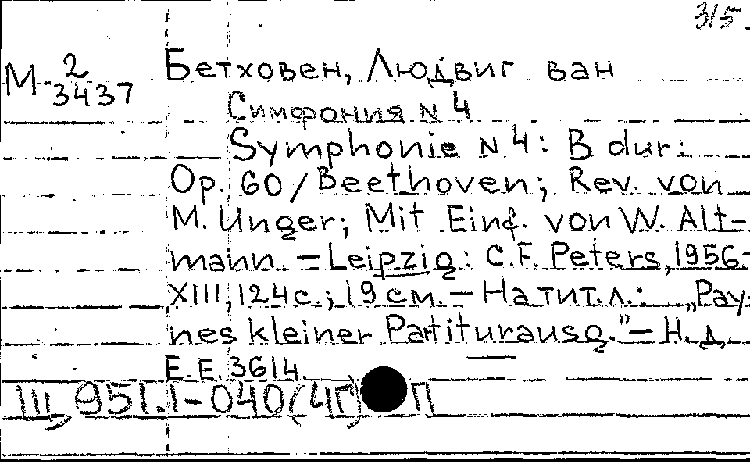 315.
М 2/3437 Бетховен, Людвиг ван
Симфония N 4
Symphonie N 4: B dur:
Op. 60/Beethoven; Rev. von
M. Unger; Mit Einf. von W. Alt-
mann. – Leipzig: C.F. Peters, 1956.–
XIII, 124 с.; 19 см. – На тит. л.: „Pay
nes kleiner Partiturausg." – Н. д.
E.E. 3614.
III, 951.1-040(4Г) П